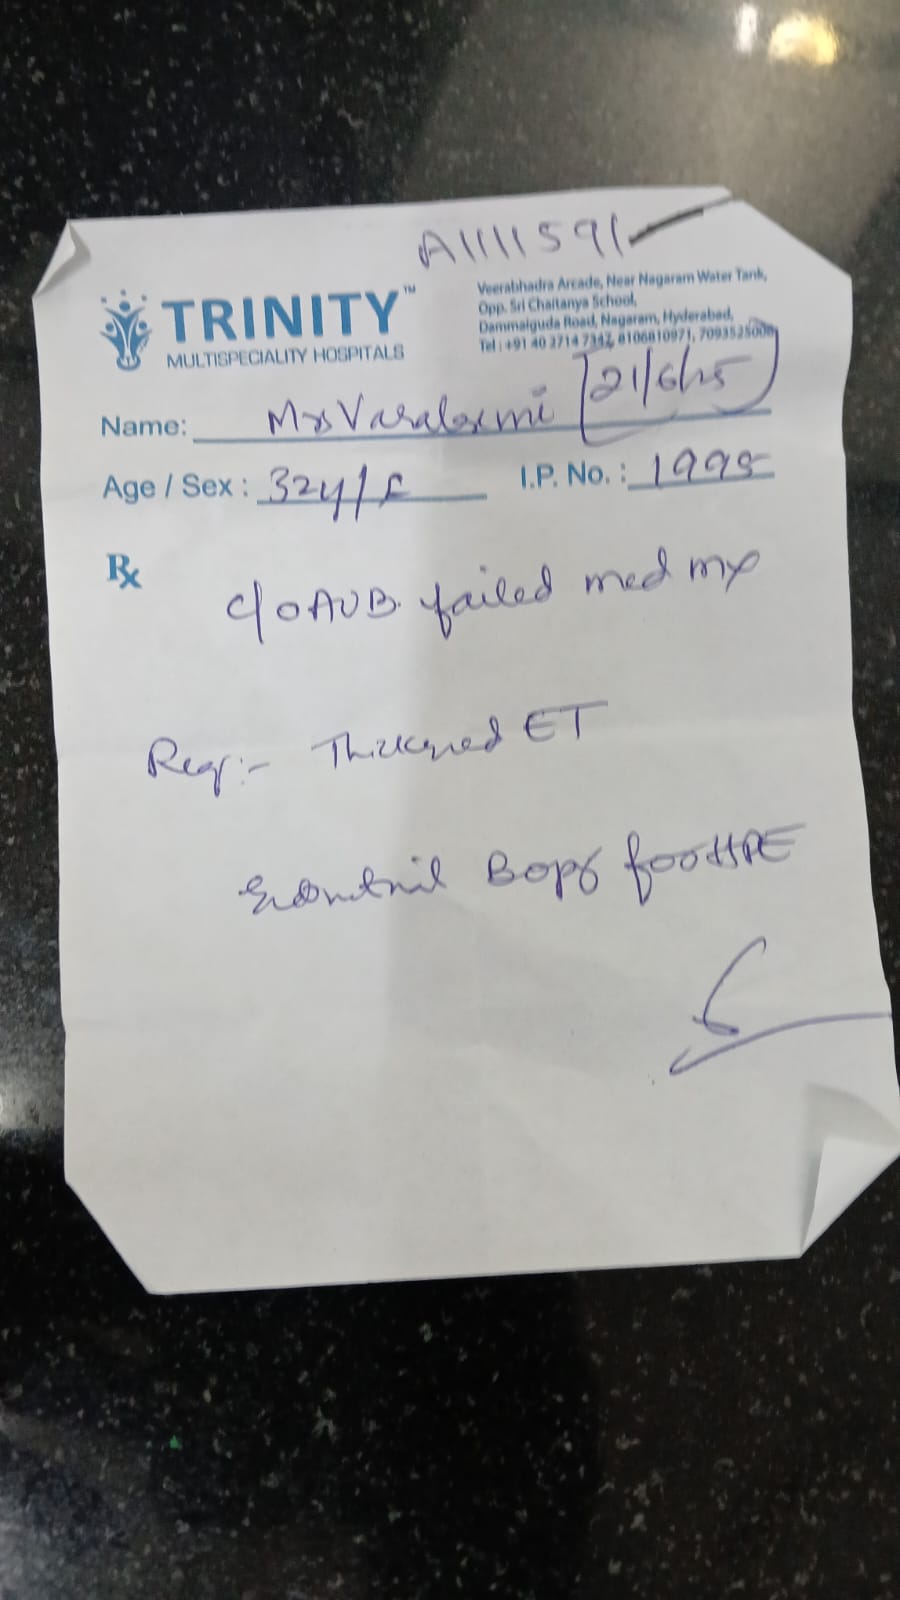 A1111591
TRINITY™
MULTISPECIALITY HOSPITALS
Veerabhadra Arcade, Near Nagaram Water Tank,
Opp. Sri Chaitanya School,
Dammaiguda Road, Nagaram, Hyderabad,
Tel : +91 40 2714 7347, 8106810971, 7093525008
21/6/25
Name: Mrs Varalaxmi
Age / Sex : 32y/F
I.P. No. : 1995
Rx
c/o AUB. failed med mx
Thickened ET
Endometrial Bopsy for HPE